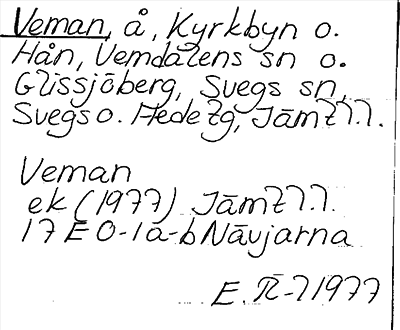 Veman, å, Kyrkbyn o.
Hån, Vemdalens sn o.
Glissjöberg, Svegs sn,
Svegs o. Hede tg, Jämtl.l.
Veman
ek (1977) Jämtl.l.
17E 0-1a-b Nävjarna
1977